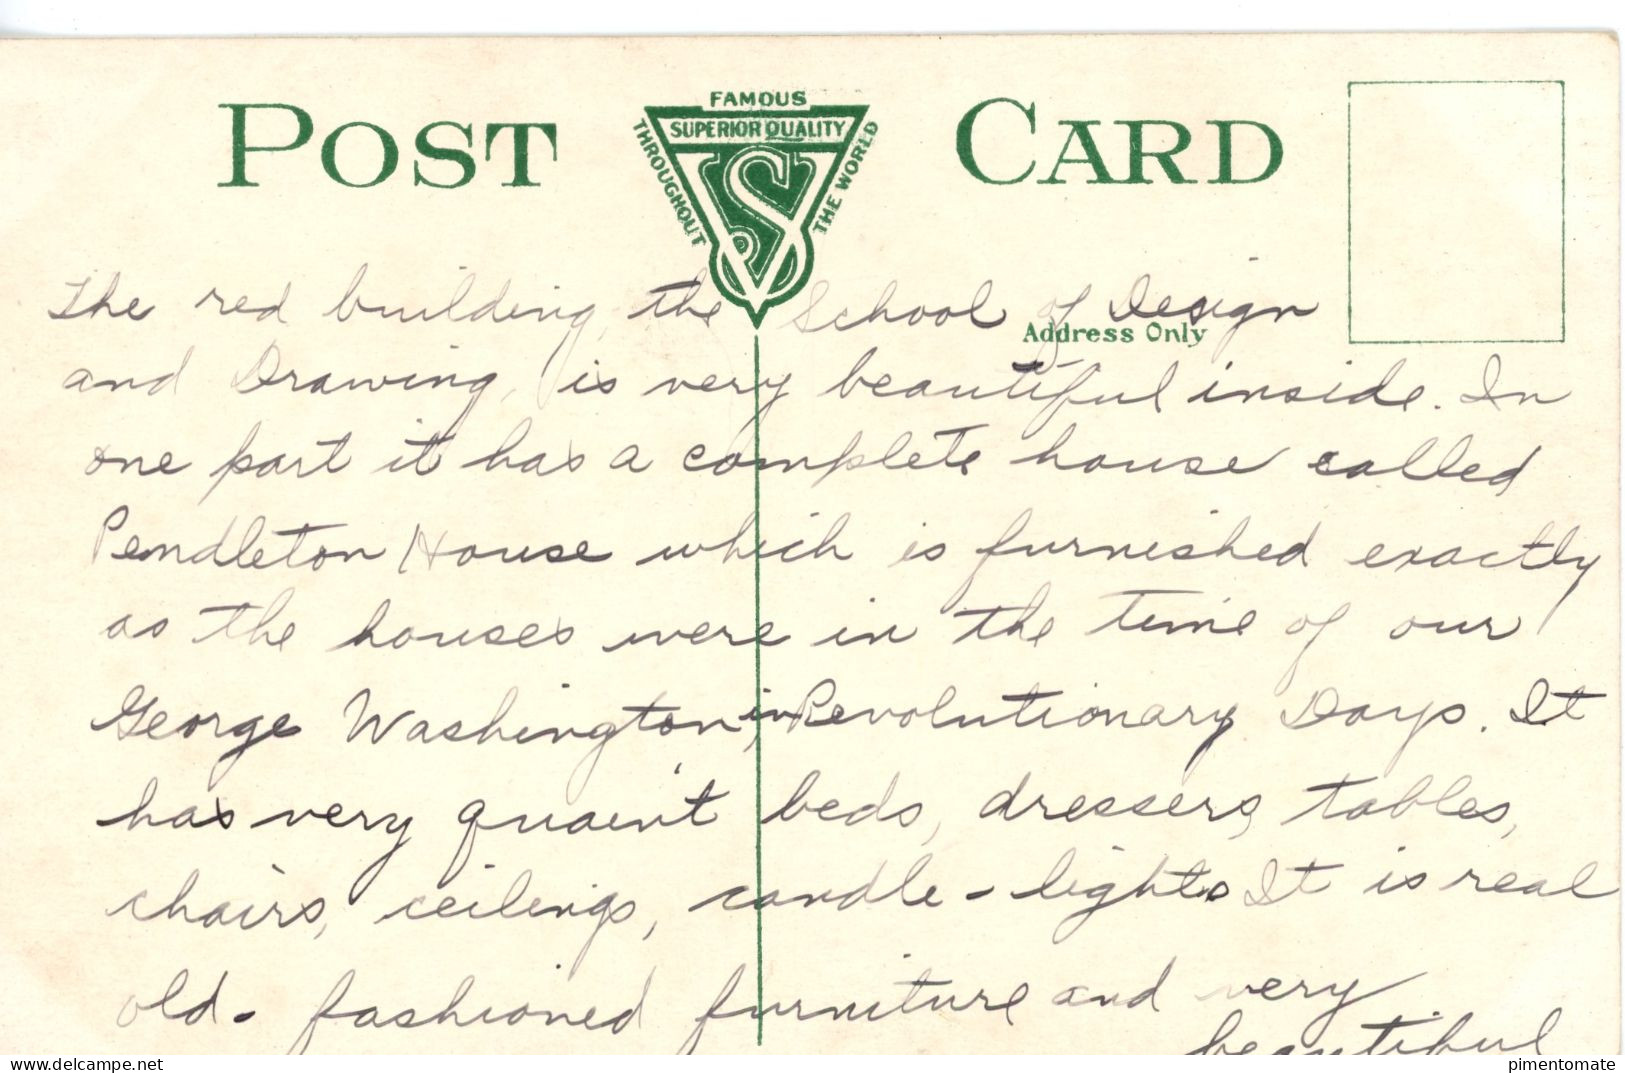 POST CARD
FAMOUS
SUPERIOR QUALITY
THROUGHOUT
THE WORLD
VS
The red building, the School of Design
Address Only
and Drawing, is very beautiful inside. In
one part it has a complete house called
Pendleton House which is furnished exactly
as the houses were in the time of our
George Washington, in Revolutionary Days. It
has very quaint beds, dressers, tables,
chairs, ceilings, candle-lights. It is real
old-fashioned furniture and very
beautiful
delcampe.net
pimentomate